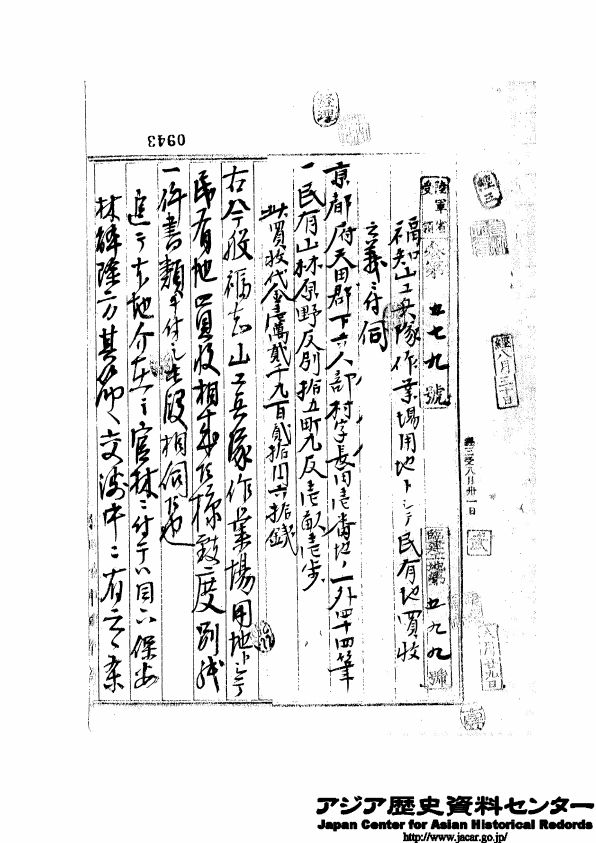 0943
經理
經三
經
八月三十日
經三受八月卅一日
陸軍省受領
第五七九九號
臨建土地第五九九號
八月廿九日
福知山工兵隊作業場用地トシテ民有地買收
之義ニ付伺
京都府天田郡下六人部村字長田壱番地ノ一外四十四筆
一民有山林原野反別拾五町九反壱畝壱歩
此買收代金壱萬貳千九百貳拾円六拾錢
右ハ今般福知山工兵隊作業場用地トシテ
民有地買收相成度別紙
一件書類相付シ此段相伺候也
追テ本地介在之官林ニ付テハ目下保安
林解除方其筋ヘ交渉中ニ有之候
アジア歴史資料センター
Japan Center for Asian Historical Records
http://www.jacar.go.jp/